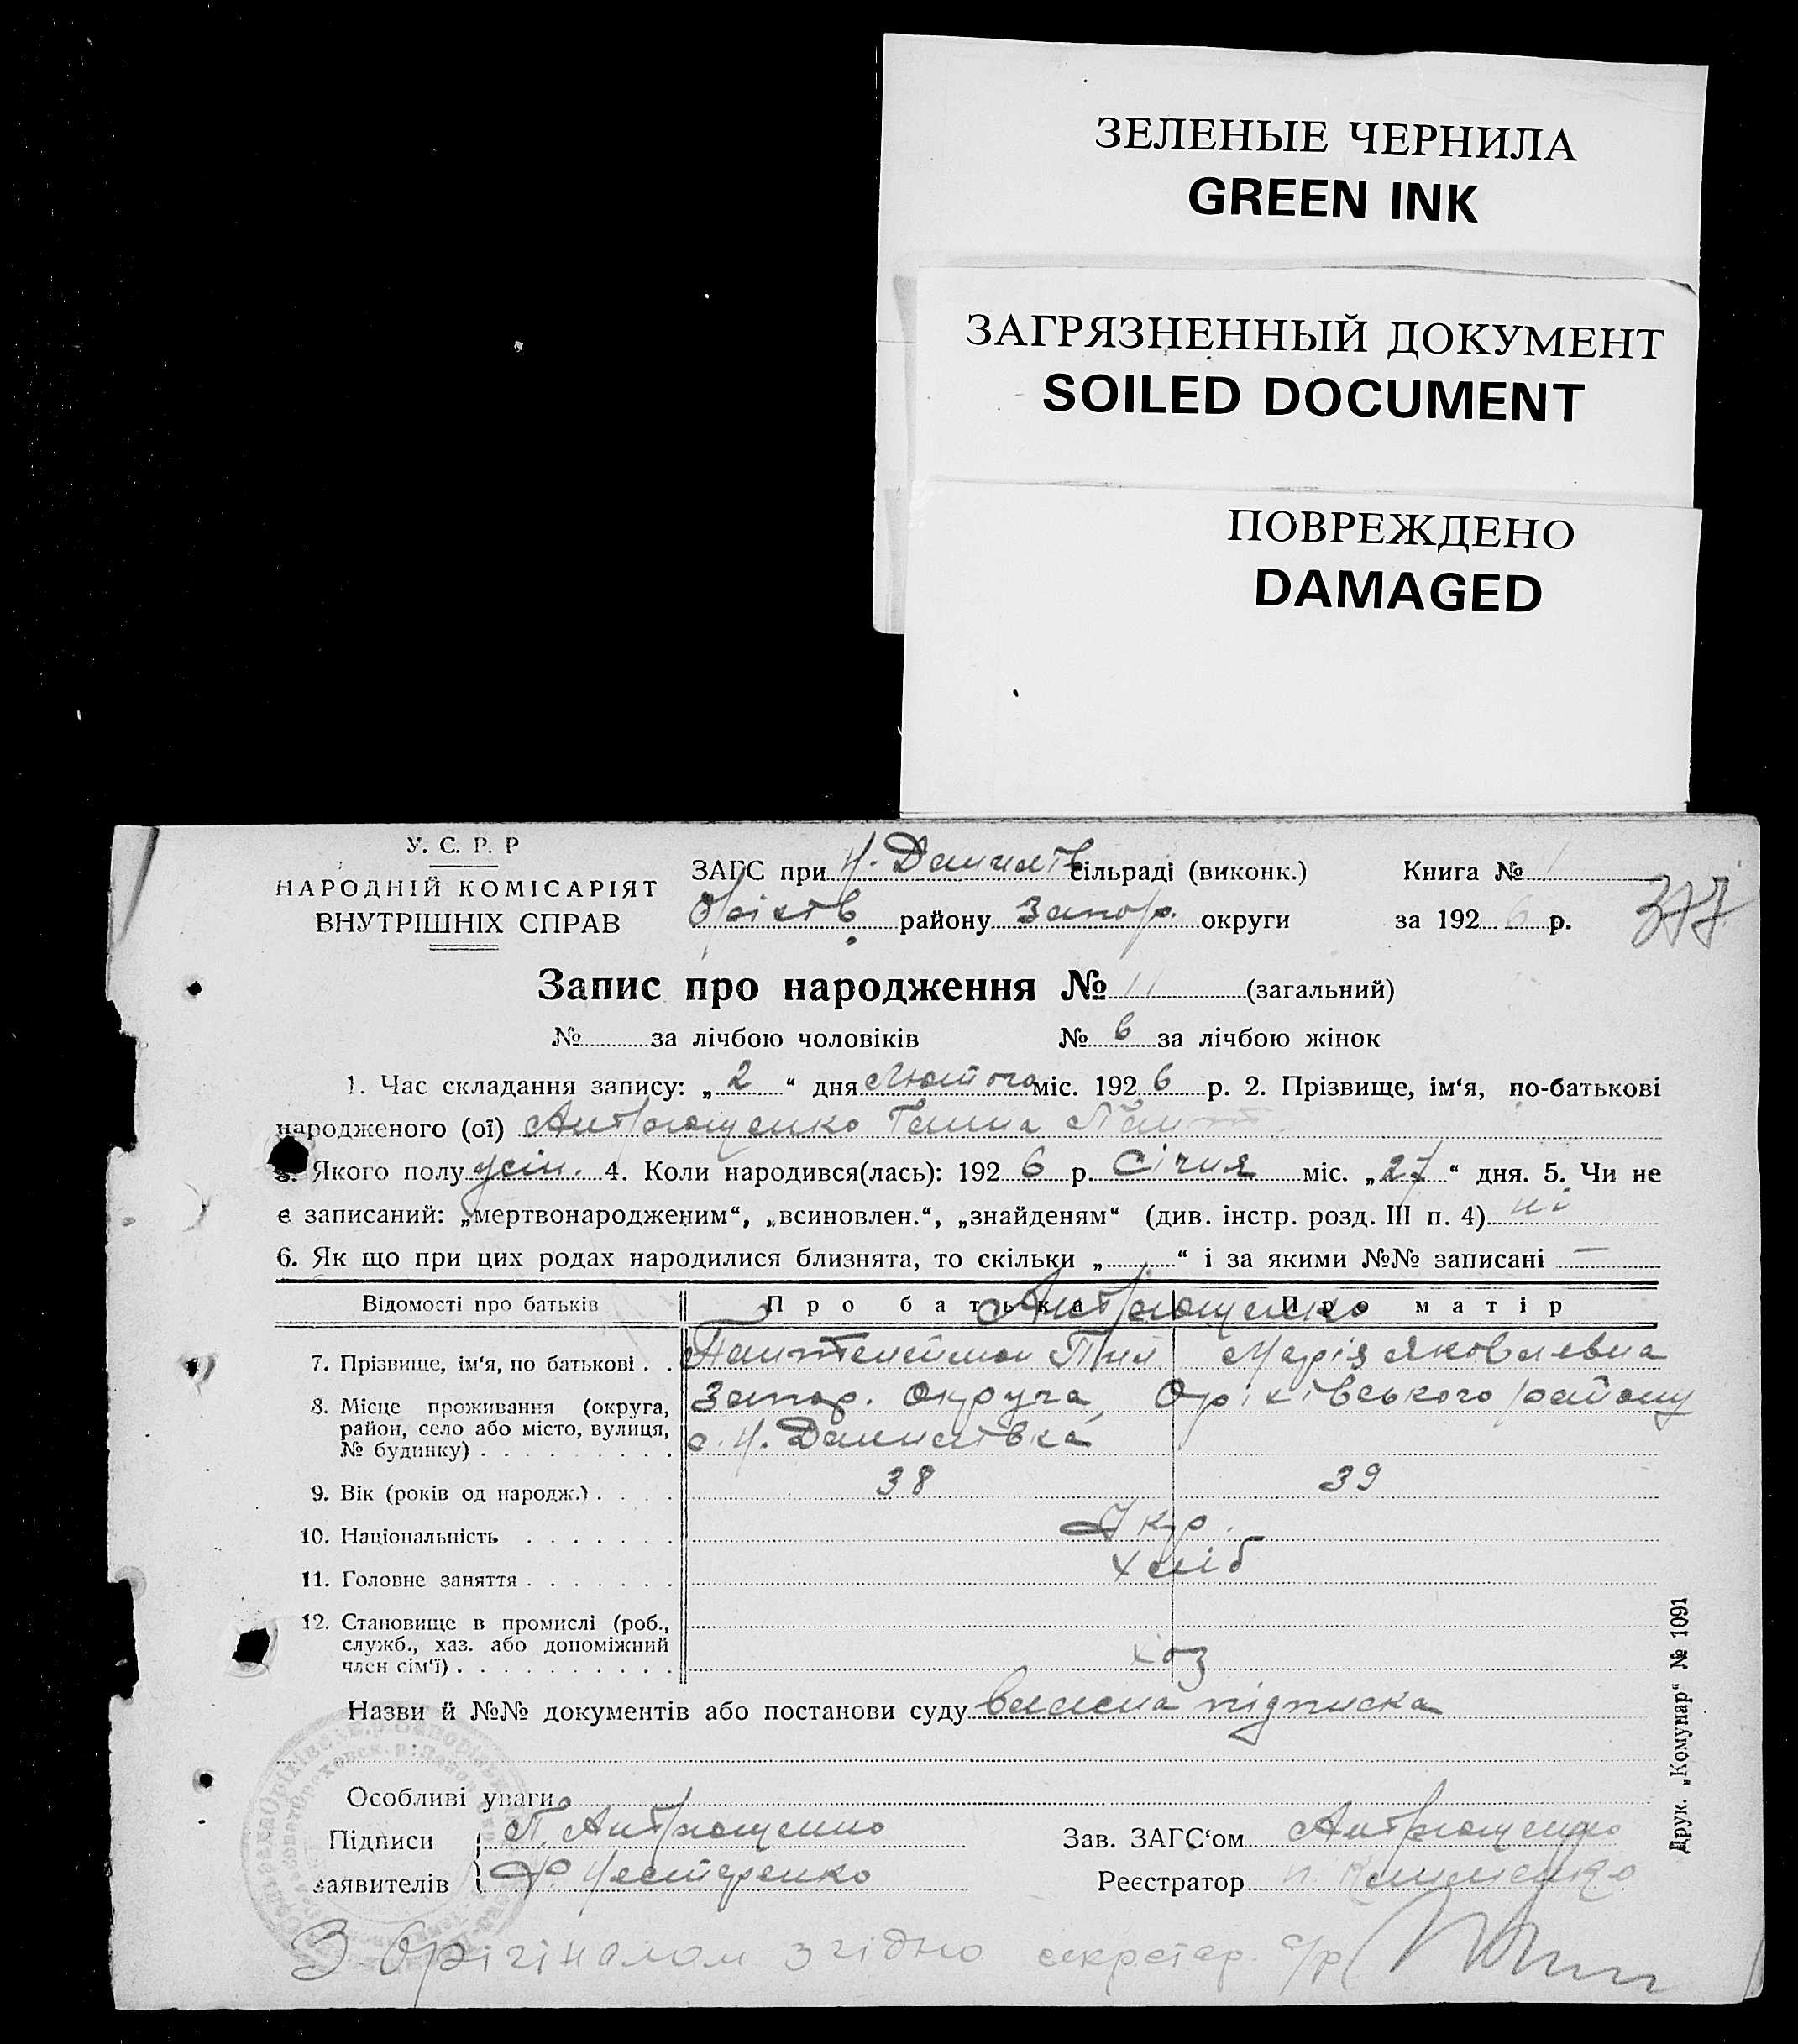 ЗЕЛЕНЫЕ ЧЕРНИЛА
GREEN INK
ЗАГРЯЗНЕННЫЙ ДОКУМЕНТ
SOILED DOCUMENT
ПОВРЕЖДЕНО
DAMAGED
У. С. Р. Р
НАРОДНІЙ КОМІСАРІЯТ
ВНУТРІШНІХ СПРАВ
ЗАГС при Н. Данилів сільраді (виконк.)
Оріхів району Запор. округи
Книга № 1
за 1926 р.
377
Запис про народження № 11 (загальний)
№ за лічбою чоловіків № 6 за лічбою жінок
1. Час складання запису: „2“ дня Лютого міс. 1926 р. 2. Прізвище, ім‘я, по-батькові
народженого (ої) Антрющенко Ганна Пант.
3. Якого полу жін. 4. Коли народився(лась): 1926 р. Січня міс. „27“ дня. 5. Чи не
є записаний: „мертвонародженим“, „всиновлен.“, „знайденям“ (див. інстр. розд. III п. 4) ні
6. Як що при цих родах народилися близнята, то скільки „ “ і за якими №№ записані —
Відомості про батьків Про батька Про матір
Антрющенко
7. Прізвище, ім‘я, по батькові . . Пантелеймон Марія Яковлевна
8. Місце проживання (округа, район, село або місто, вулиця, № будинку) Запор. Округа, Оріхівського району
с. Н. Данилівка
9. Вік (років од народж.) . . . . 38 39
10. Національність . . . . . . . Укр.
11. Головне заняття . . . . . . . хліб
12. Становище в промислі (роб., служб., хаз. або допоміжний член сім‘ї) . . . . . . . . . . хоз
Назви й №№ документів або постанови суду власна підписка
Особливі уваги
Підписи заявителів { П. Антрющенко
Ф. Нестеренко
Зав. ЗАГС‘ом Антрющенко
Реєстратор Клименко
З орігіналом згідно секретар с/р
Друк. „Комунар“ № 1091